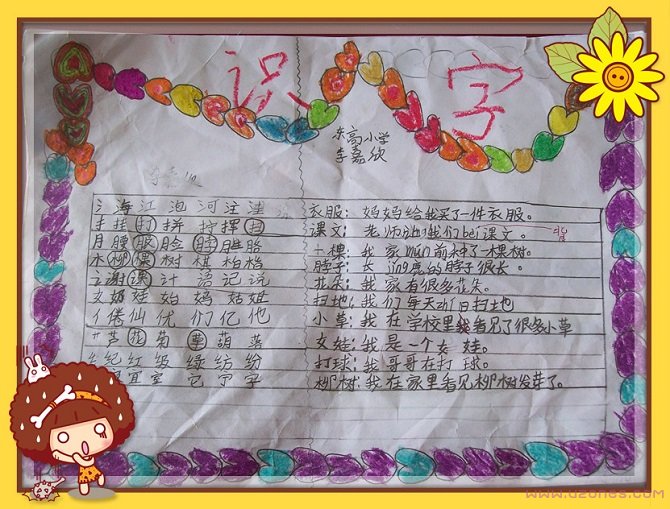 识字
东高小学
李嘉欣
氵海江泡河注洼
扌挂打拼拧挥扫
月腫服脸脖胜胳
木柳棵树棋柏档
讠谢课汁语记说
女娃始妈姑娃
亻倦仙优们亿他
艹芦花菊草葫落
纟纪红级绿纺纷
宜室它字字
衣服：妈妈给我买了一件衣服。
课文：老师让我们bèi课文。
一棵：我家mén前种了一棵树。
脖子：长jǐng鹿的脖子很长。
花朵：我家有很多花朵。
扫地：我们每天dōu扫地
小草：我在学校里我看见了很多小草
女娃：我是一个女娃。
打球：我哥哥在打球。
柳树：我在家里看见柳树发芽了。
www.dzones.com